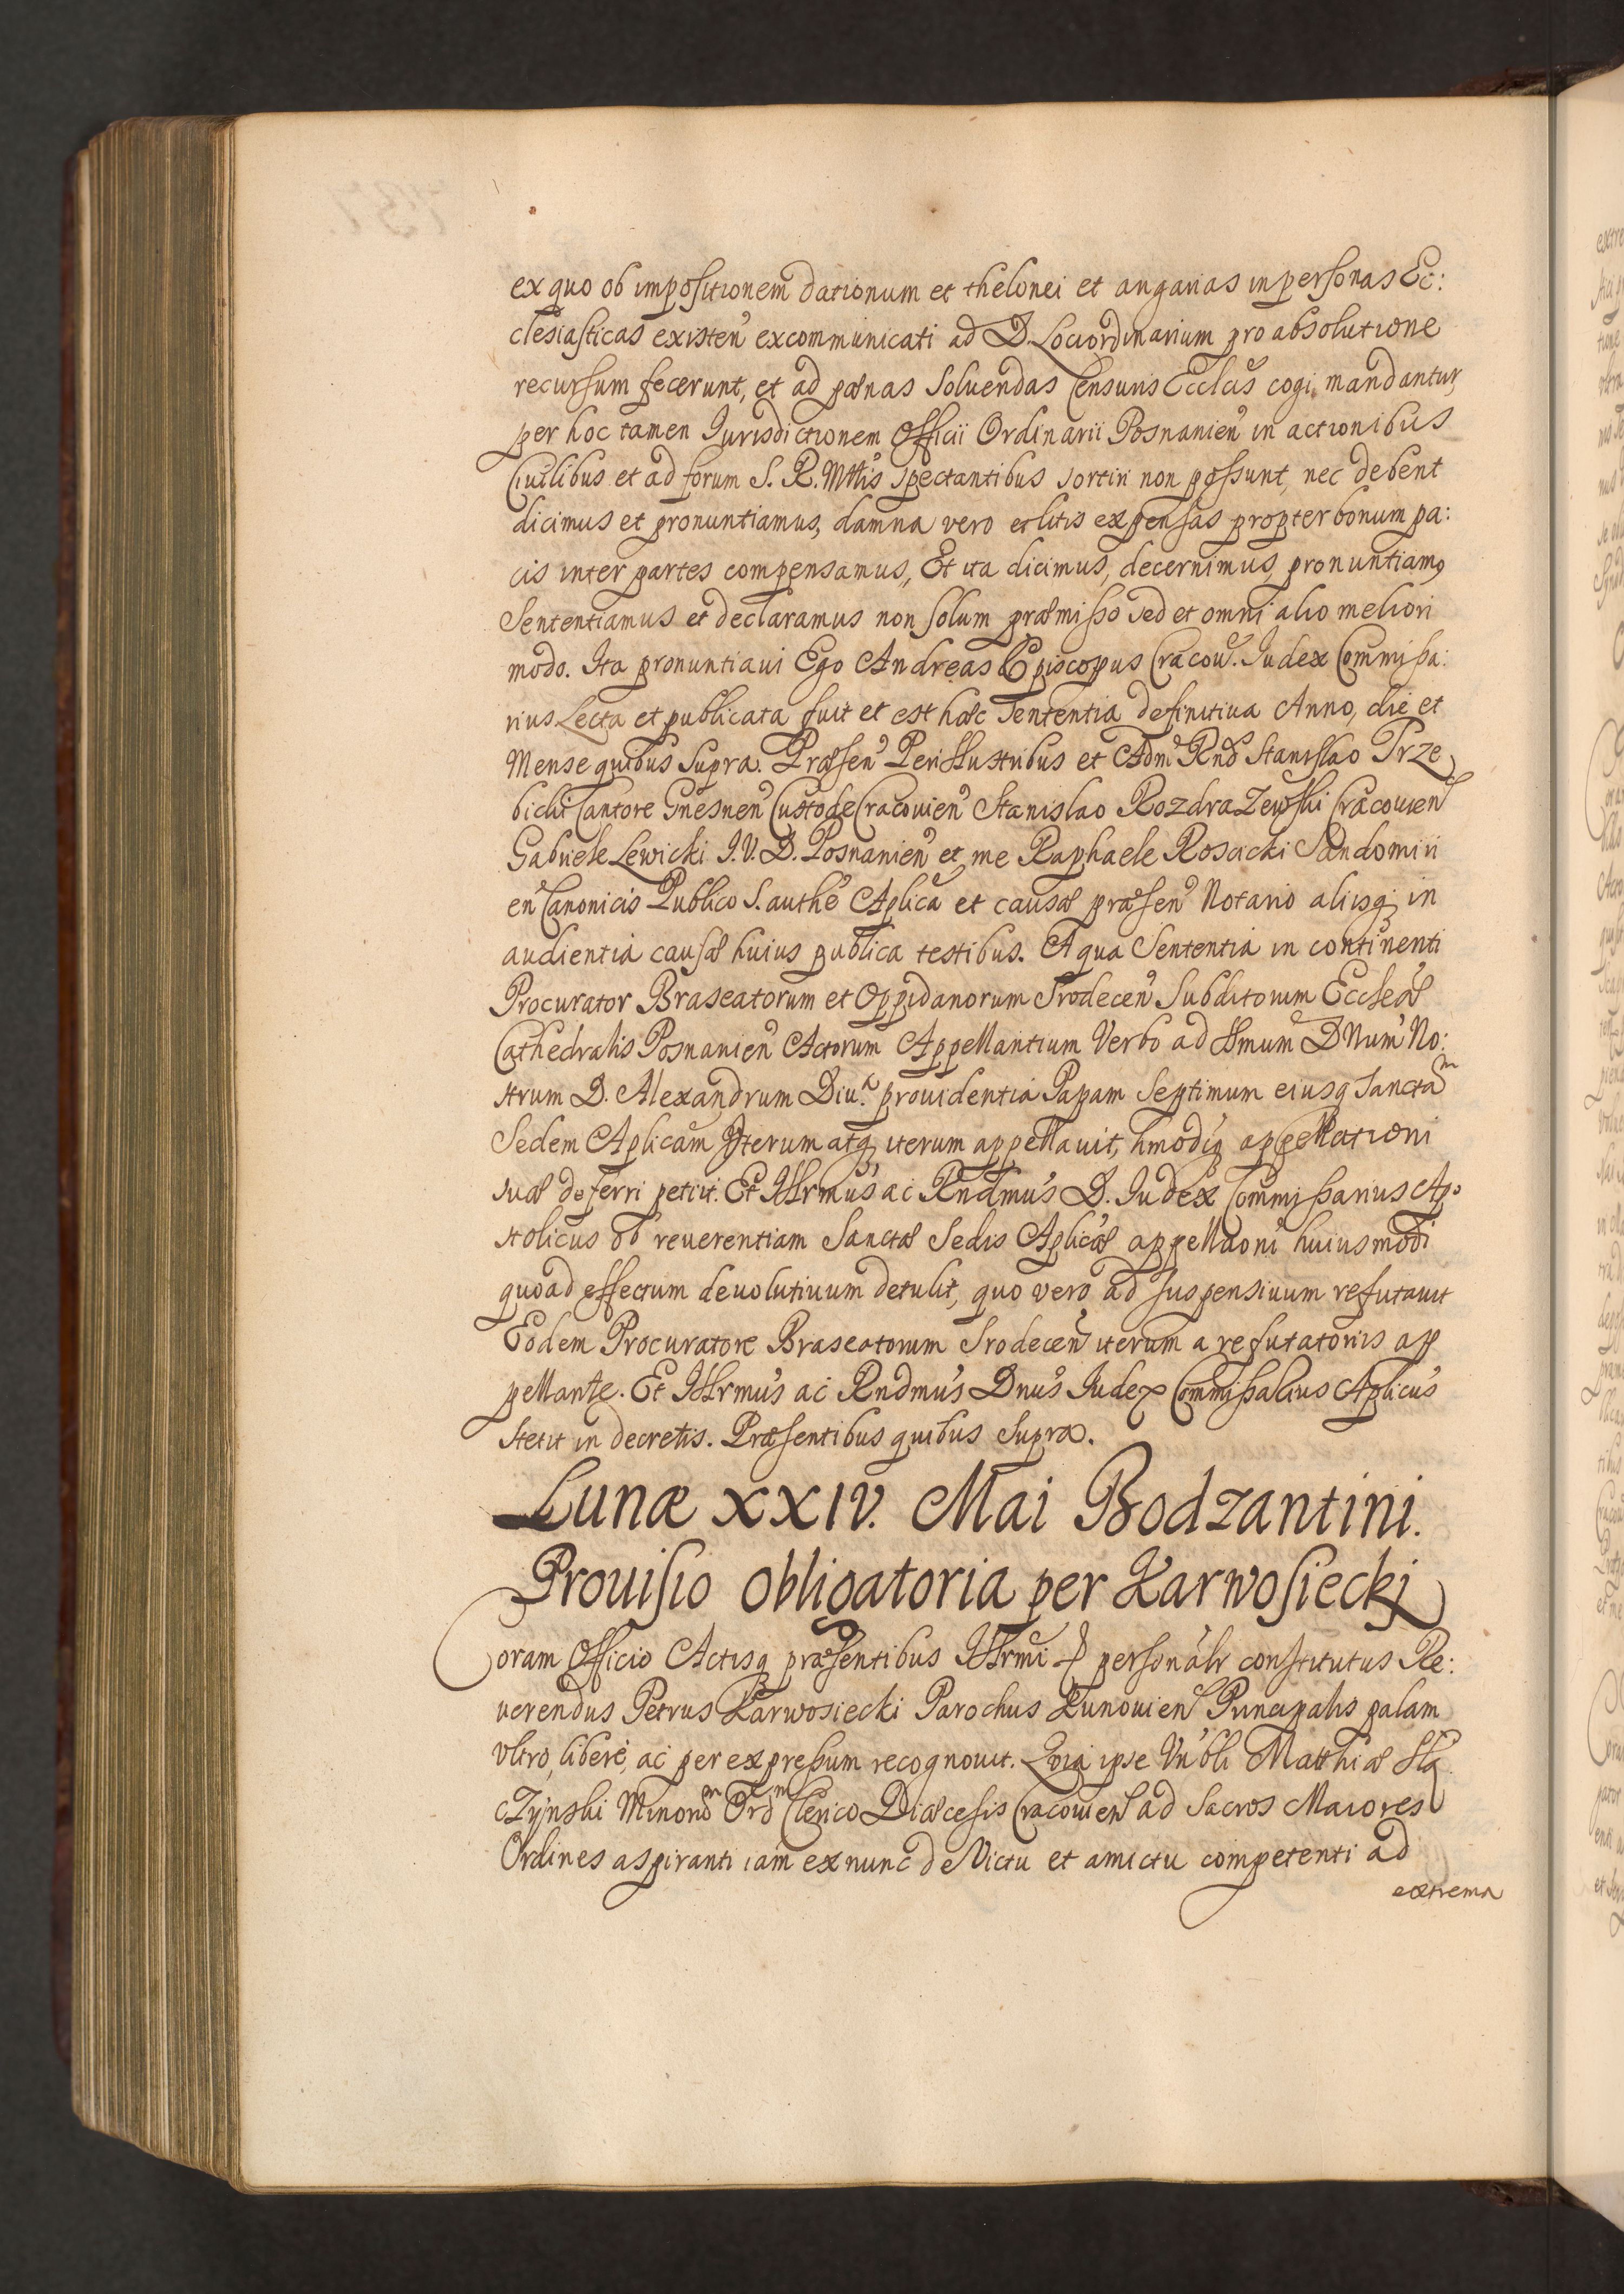 ex quo ob impositionem dationum et thelonei et angarias in personas Ec:
clesiasticas existen excommunicati ad D. Lociordinarium pro absolutione
recursum fecerunt, et ad pœnas soluendas Censuris Ecclcis cogi mandantur,
per hoc tamen Jurisdictionem Officii Ordinarii Posnanien in actionibus
Ciuilibus et ad forum S. R. Mttis spectantibus sortiri non possunt, nec debent
dicimus et pronuntiamus, damna vero et litis expensas propter bonum pa:
cis inter partes compensamus, Et ita dicimus, decernimus, pronuntiamq
Sententiamus et declaramus non solum præmisso sed et omni alio meliori
modo. Ita pronuntiaui Ego Andreas Episcopus Cracou. Iudex Commissa:
rius Lecta et publicata fuit et est hæc Sententia definitiua Anno, die et
Mense quibus Supra. Præsen Perillustribus et Adm Rnd Stanislao Trze
bicki Cantore Gnesnen Custode Cracouien Stanislao Rozdrazewski Cracouien
Gabriele Lewicki J. V. D. Posnanien et me Raphaele Rosacki Sandomiri
en Canonicis Publico S. authe Aplica et causæ præsen Notario aliisq in
audientia causæ huius publica testibus. A qua Sententia in continenti
Procurator Braseatorum et Oppidanorum Srodecen Subditorum Eccleæ
Cathedralis Posnanien Actorum Appellantium Verbo ad SSmum DNum No:
strum D. Alexandrum Diu.a prouidentia Papam Septimum eiusq Sanctam
Sedem Aplicam Iterum atq iterum appellauit, hmodiq appellationi
suæ deferri petiit. Et Illrmus ac Rndmus D. Iudex Commissarius Apo
stolicus ob reuerentiam Sanctæ Sedis Aplicæ appellaoni huiusmodi
quoad effectum deuolutiuum detulit, quo vero ad suspensiuum refutauit
Eodem Procuratore Braseatorum Srodecen iterum a refutatoriis ap
pellante. Et Illrmus ac Rndmus Dnus Iudex Commissarius Aplicus
stetit in decretis. Præsentibus quibus Supra.
Lunæ XXIV. Mai Bodzantini.
Prouisio obligatoria per Karwosiecki
Coram Officio Actisq præsentibus Illrmi personalr constitutus Re:
verendus Petrus Karwosiecki Parochus Kunouien Principalis palam
vltro, libere, ac per expressum recognouit. Quia ipse Vnbli Matthiæ Sla
czynski Minorum Ordm Clerico Diæcesis Cracouien ad Sacros Maiores
Ordines aspiranti iam ex nunc de Victu et amictu competenti ad
extrema